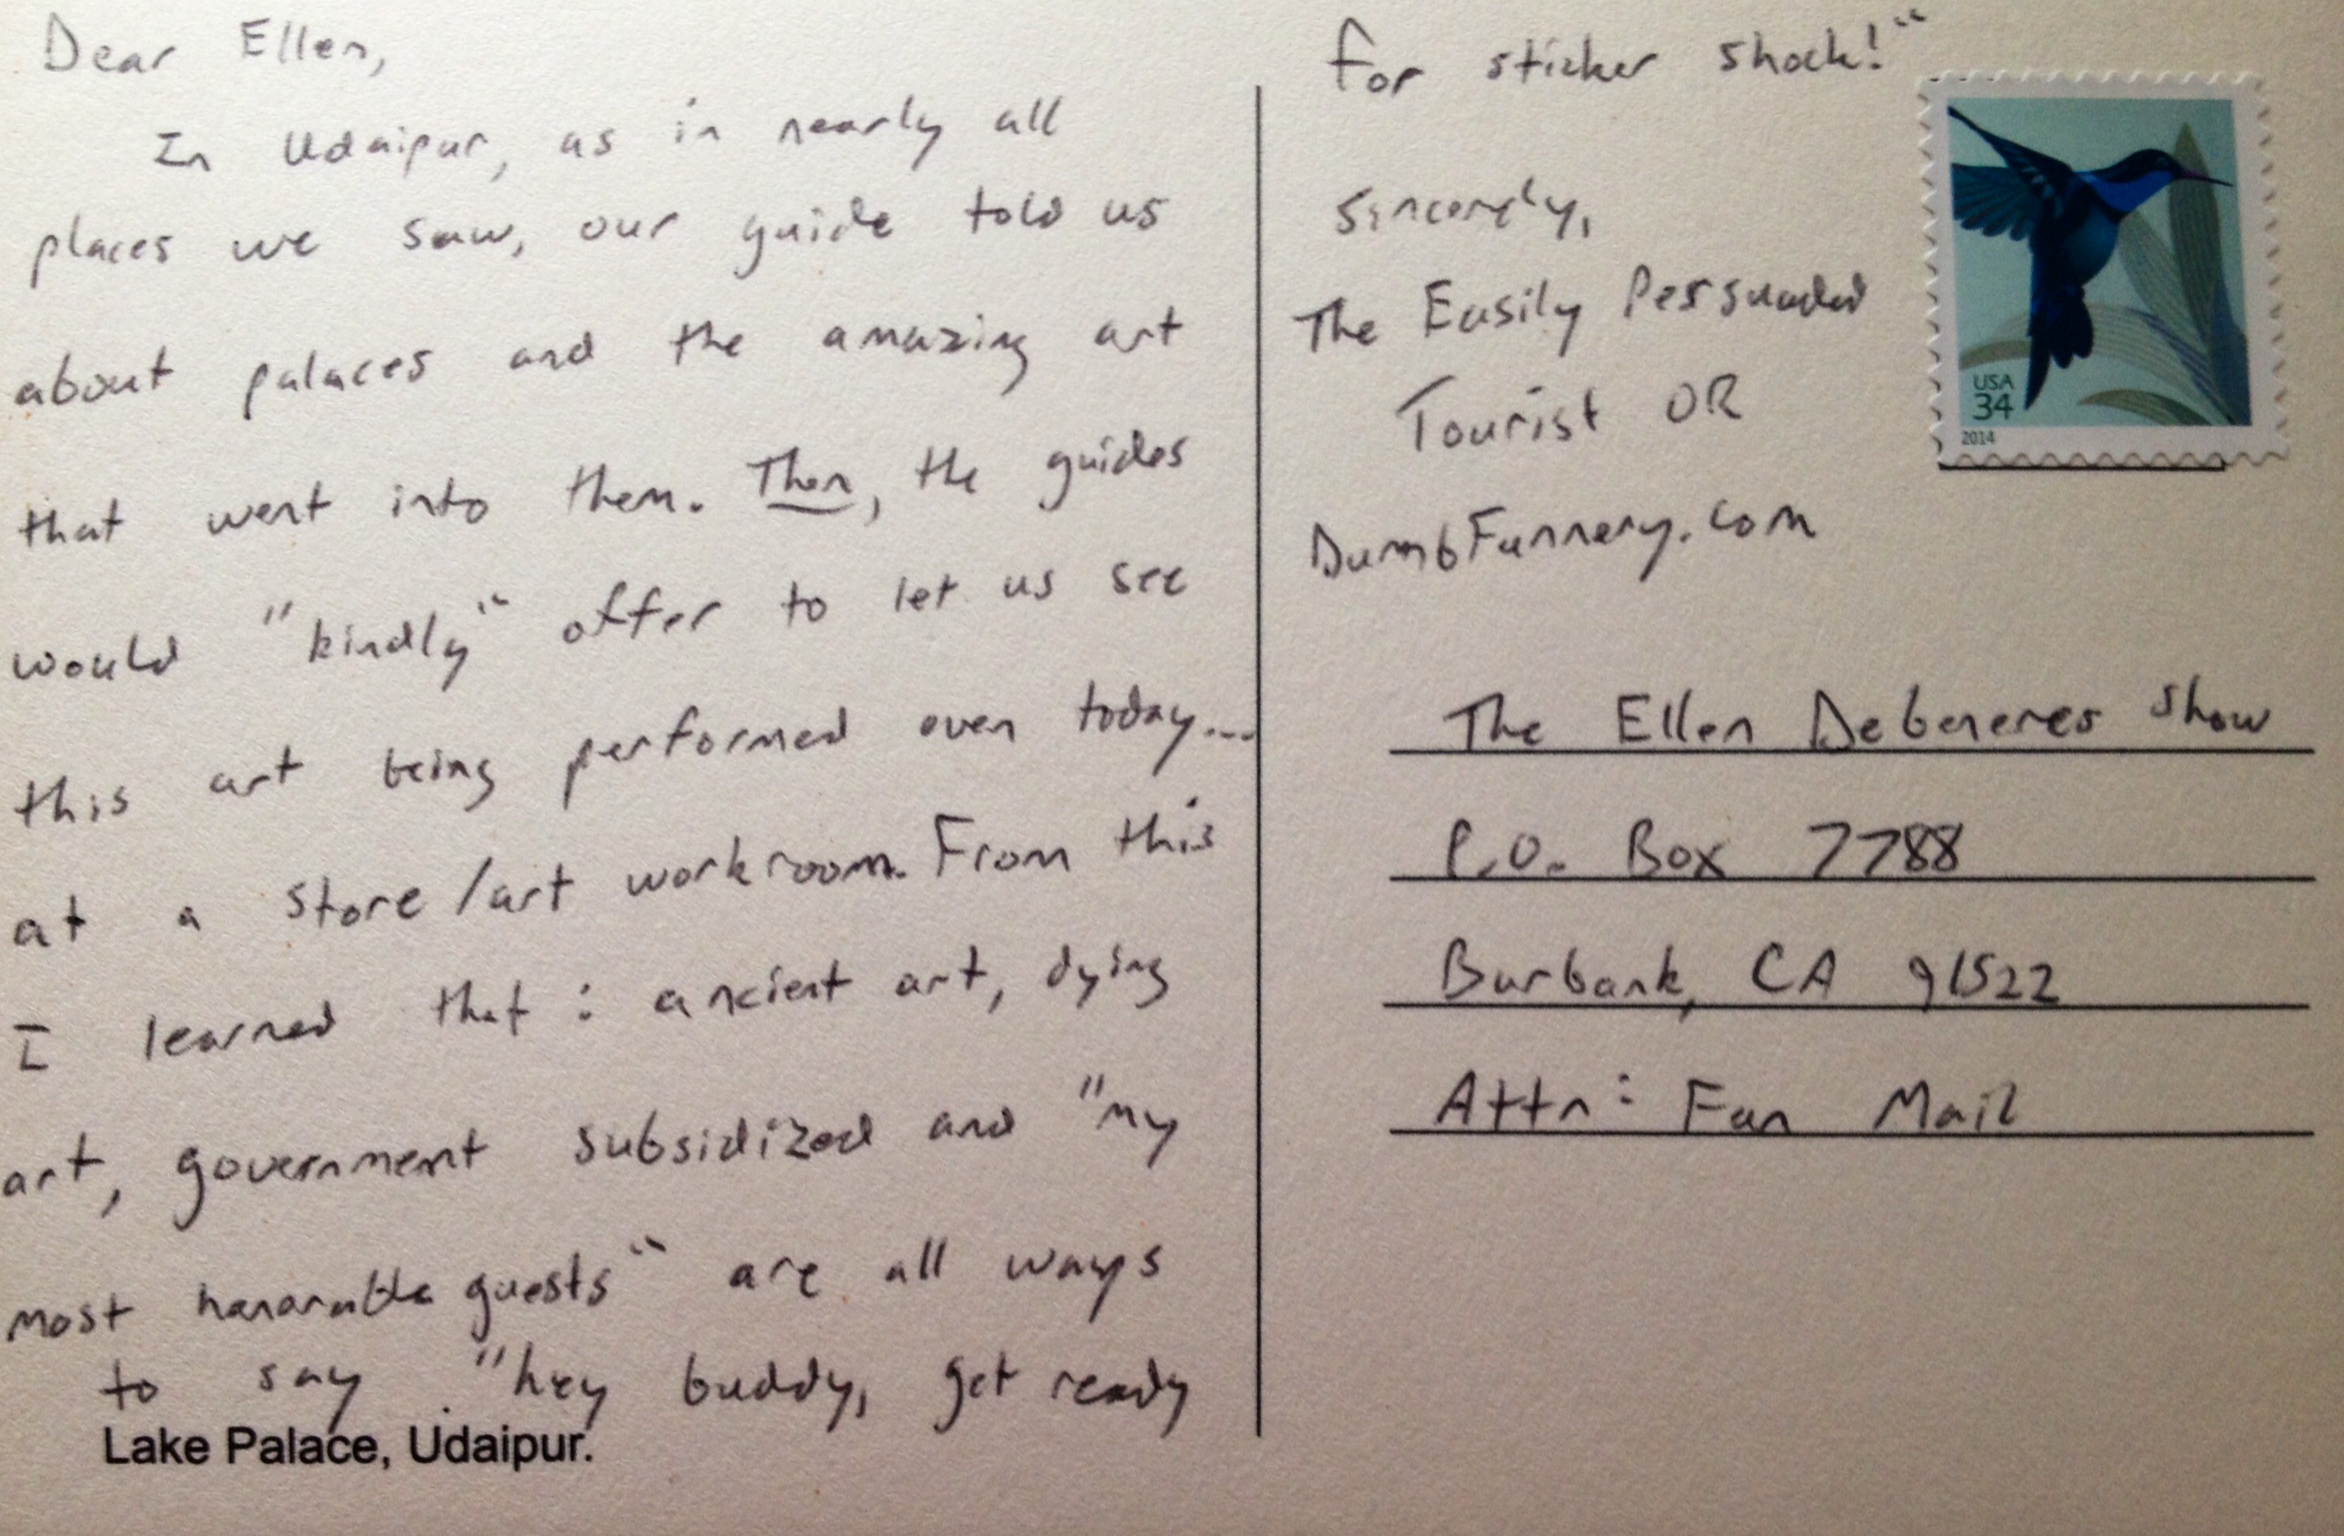 Dear Ellen,
In Udaipur, as in nearly all
places we saw, our guide told us
about palaces and the amazing art
that went into them. Then, the guides
would "kindly" offer to let us see
this art being performed even today...
at a store/art workroom. From this
I learned that: ancient art, dying
art, government subsidized and "my
most honorable guests" are all ways
to say "hey buddy, get ready
Lake Palace, Udaipur.
for sticker shock!"
Sincerely,
The Easily Persuaded
Tourist OR
DumbFunnery.com
USA
34
2014
The Ellen Degeneres Show
P.O. Box 7788
Burbank, CA 91522
Attn: Fan Mail